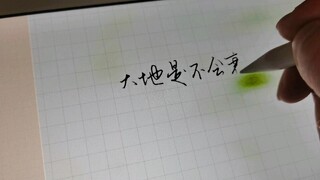 大地是不会